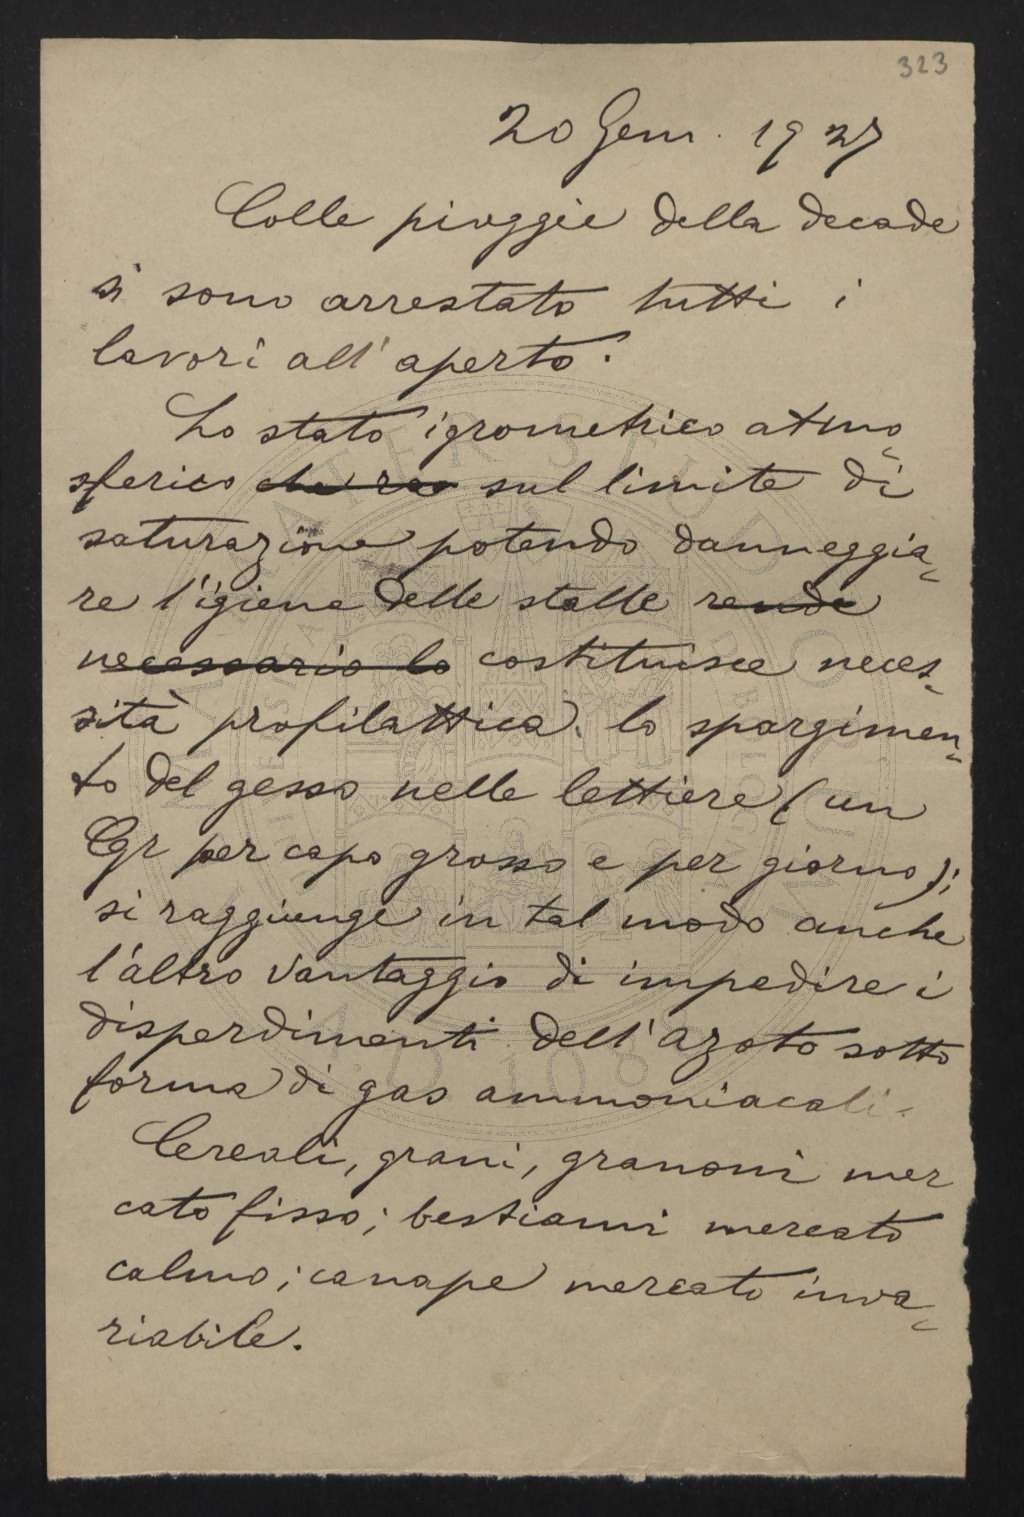 323
20 Genn. 1927
Colle pioggie della decade
si sono arrestato tutti i
lavori all'aperto.
Lo stato igrometrico atmo-
sferico che sul limite di
saturazione potendo danneggia-
re l'igiene delle stalle rende
necessario lo costituisce neces-
sità profilattica lo spargimen-
to del gesso nelle lettiere (un
Cgr per capo grosso e per giorno);
si raggiunge in tal modo anche
l'altro vantaggio di impedire i
disperdimenti dell'azoto sotto
forma di gas ammoniacali.
Cereali, grani, granoni mer
cato fisso; bestiami mercato
calmo; canape mercato inva-
riabile.
ALMA MATER STUDIORUM
A.D. 1088